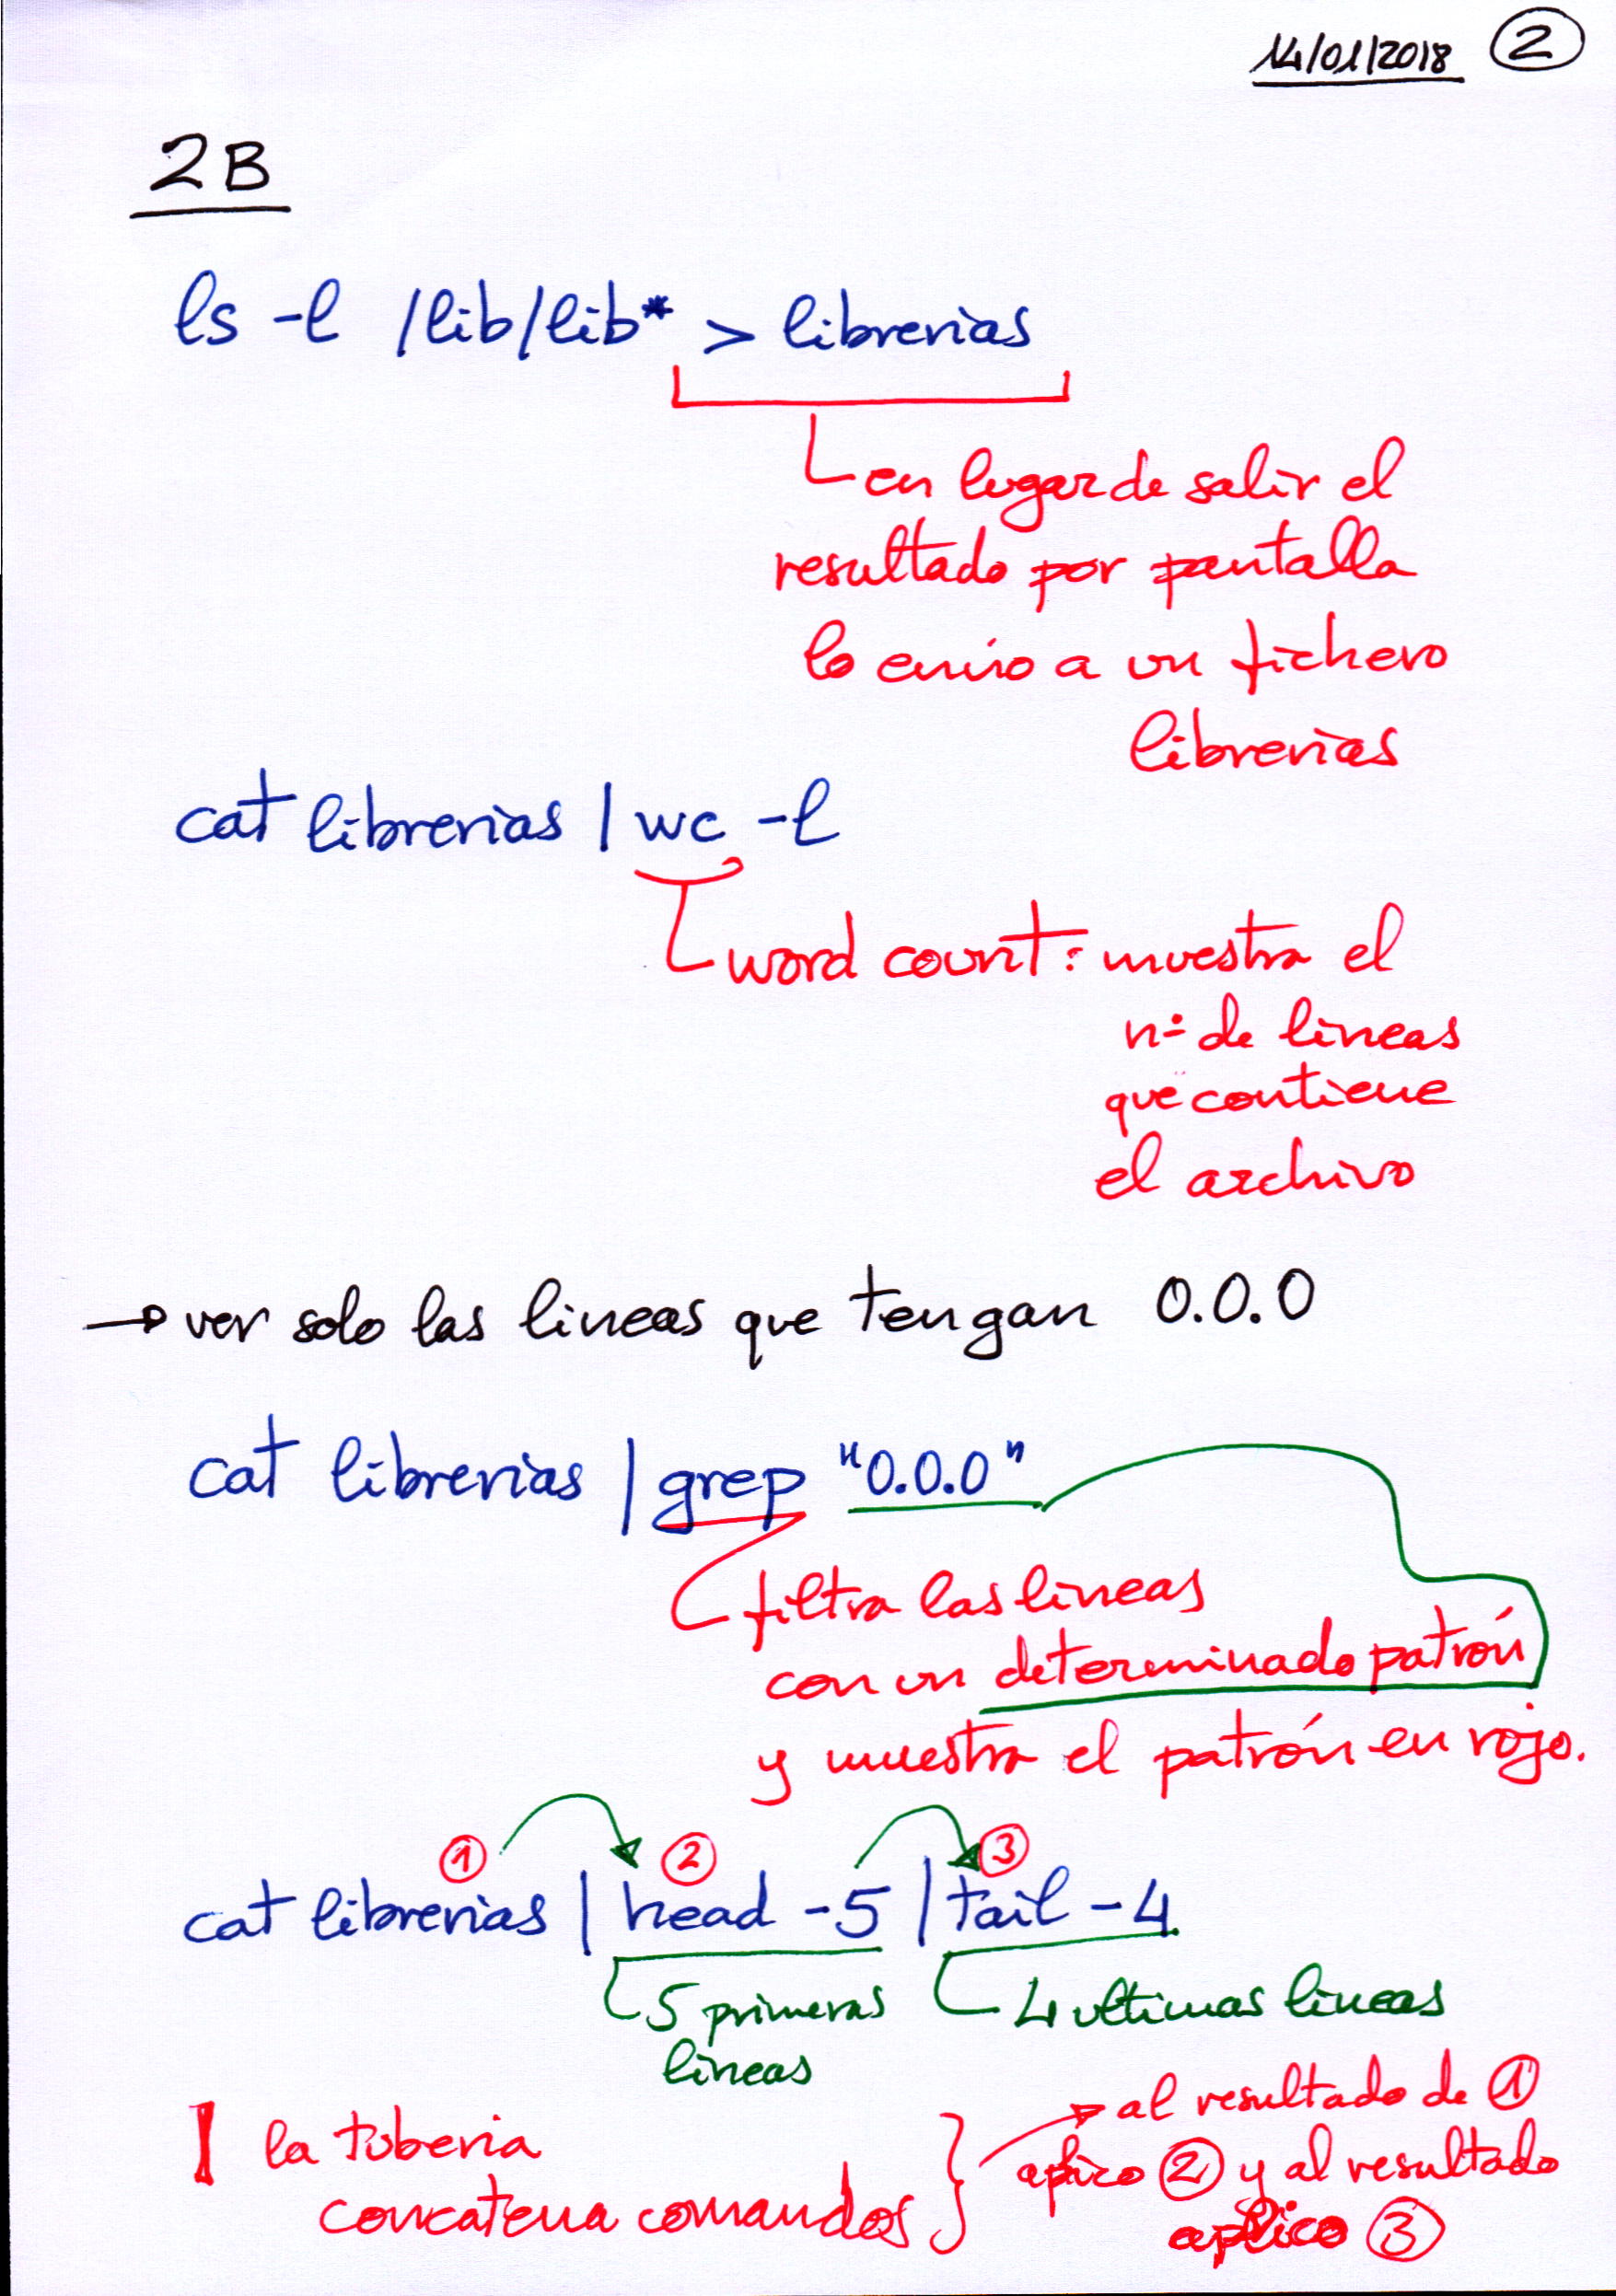 14/01/2018 2
2B
ls -l /lib/lib* > librerias
en lugar de salir el
resultado por pantalla
lo envio a un fichero
librerias
cat librerias | wc -l
word count: muestra el
nº de lineas
que contiene
el archivo
→ ver solo las lineas que tengan 0.0.0
cat librerias | grep "0.0.0"
filtra las lineas
con un determinado patrón
y muestra el patrón en rojo.
1 2 3
cat librerias | head -5 | tail -4
5 primeras
lineas
4 ultimas lineas
| la tuberia
concatena comandos
→ al resultado de 1
aplico 2 y al resultado
aplico 3